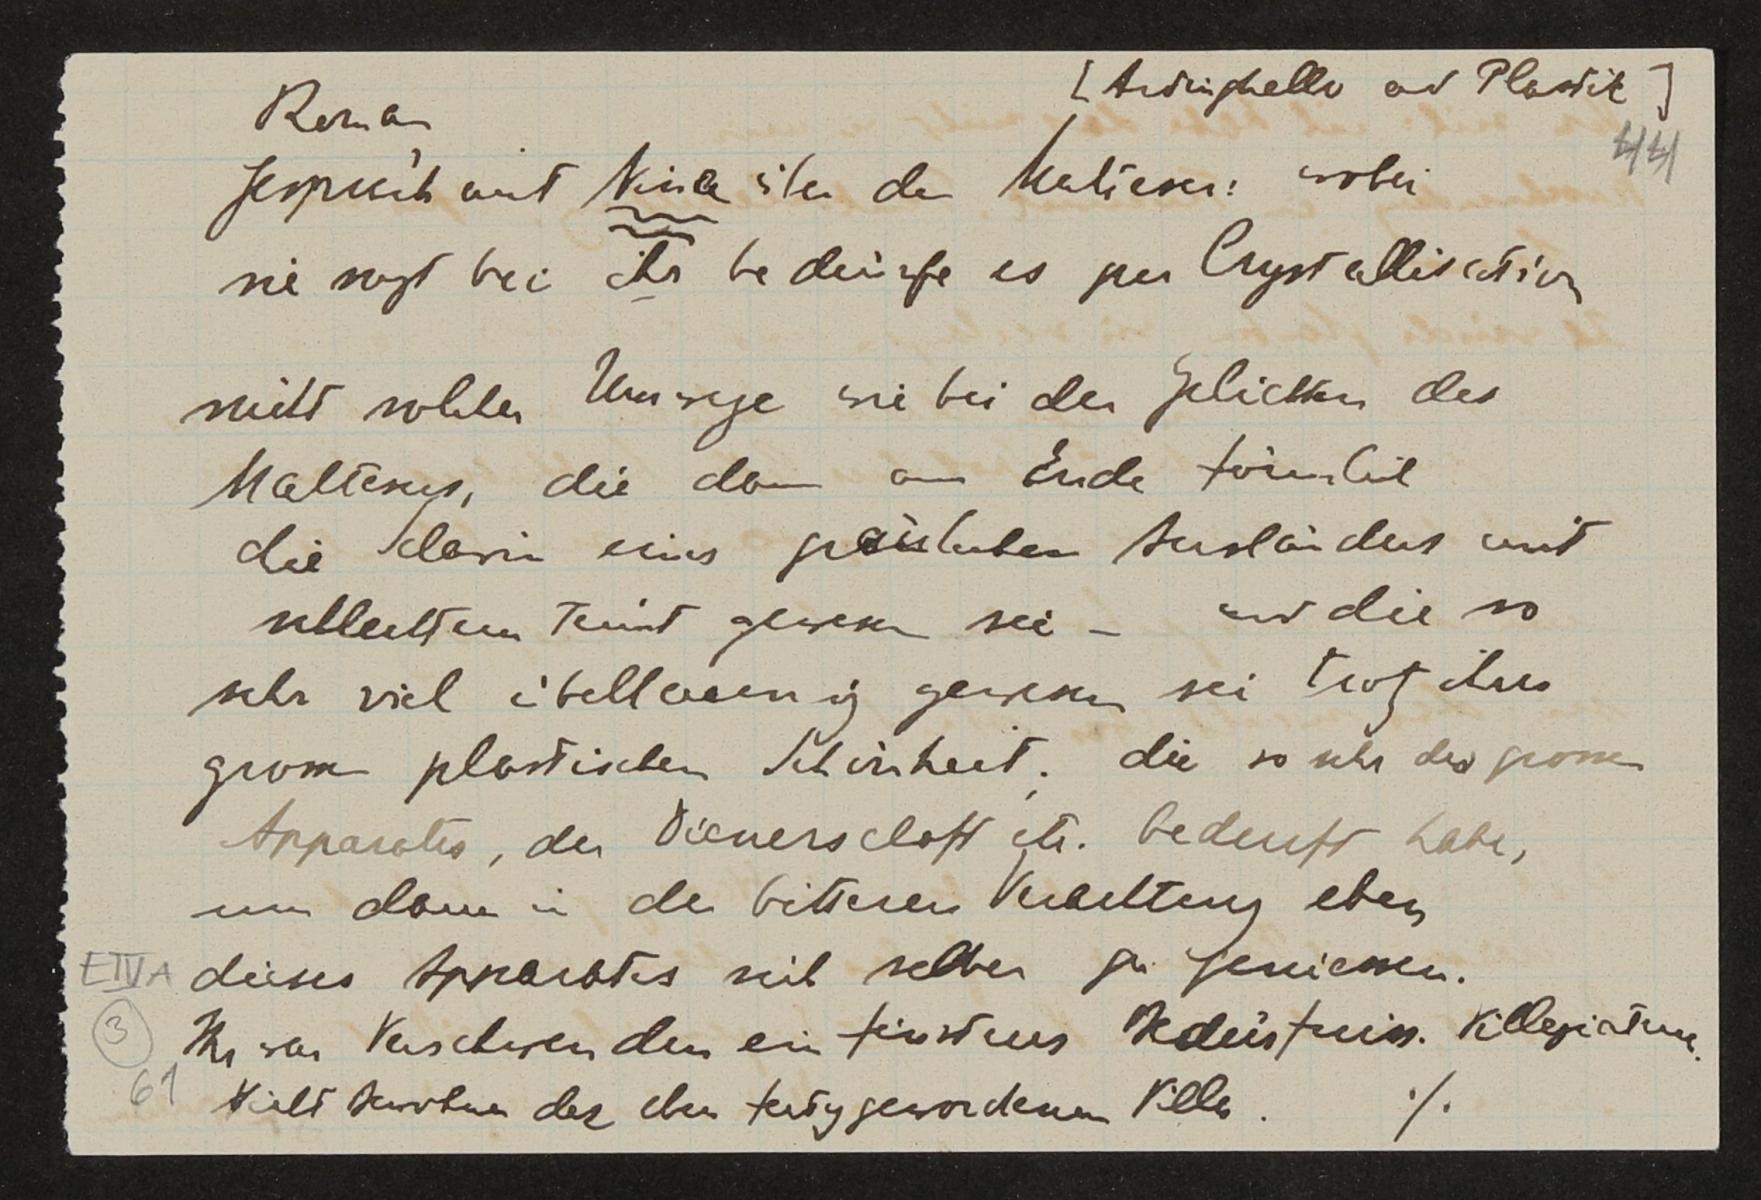 [Ardinghello und Plastik]
44
Roman
Gespräch mit Nina über den Malteser: wobei
sie sagt bei ihr bedürfe es zur Crystallisation
nicht solcher Umwege wie bei der Geliebten des
Maltesers, die dann am Ende förmlich
die Sclavin eines grässlichen Ausländers mit
schlechtem Teint gewesen sei – und die so
sehr viel übellaunig gewesen sei trotz ihrer
grossen plastischen Schönheit. die so sehr des grossen
Apparates, der Dienerschaft etc. bedurft habe,
um dann in der bitteren Verachtung eben
dieses Apparates sich selber zu geniessen.
Ihr war Verschwenden ein finsteres Bedürfniss. Villegiatura.
Nicht bewohnen der eben fertiggewordenen Villa. ./.
E IV A
3
61